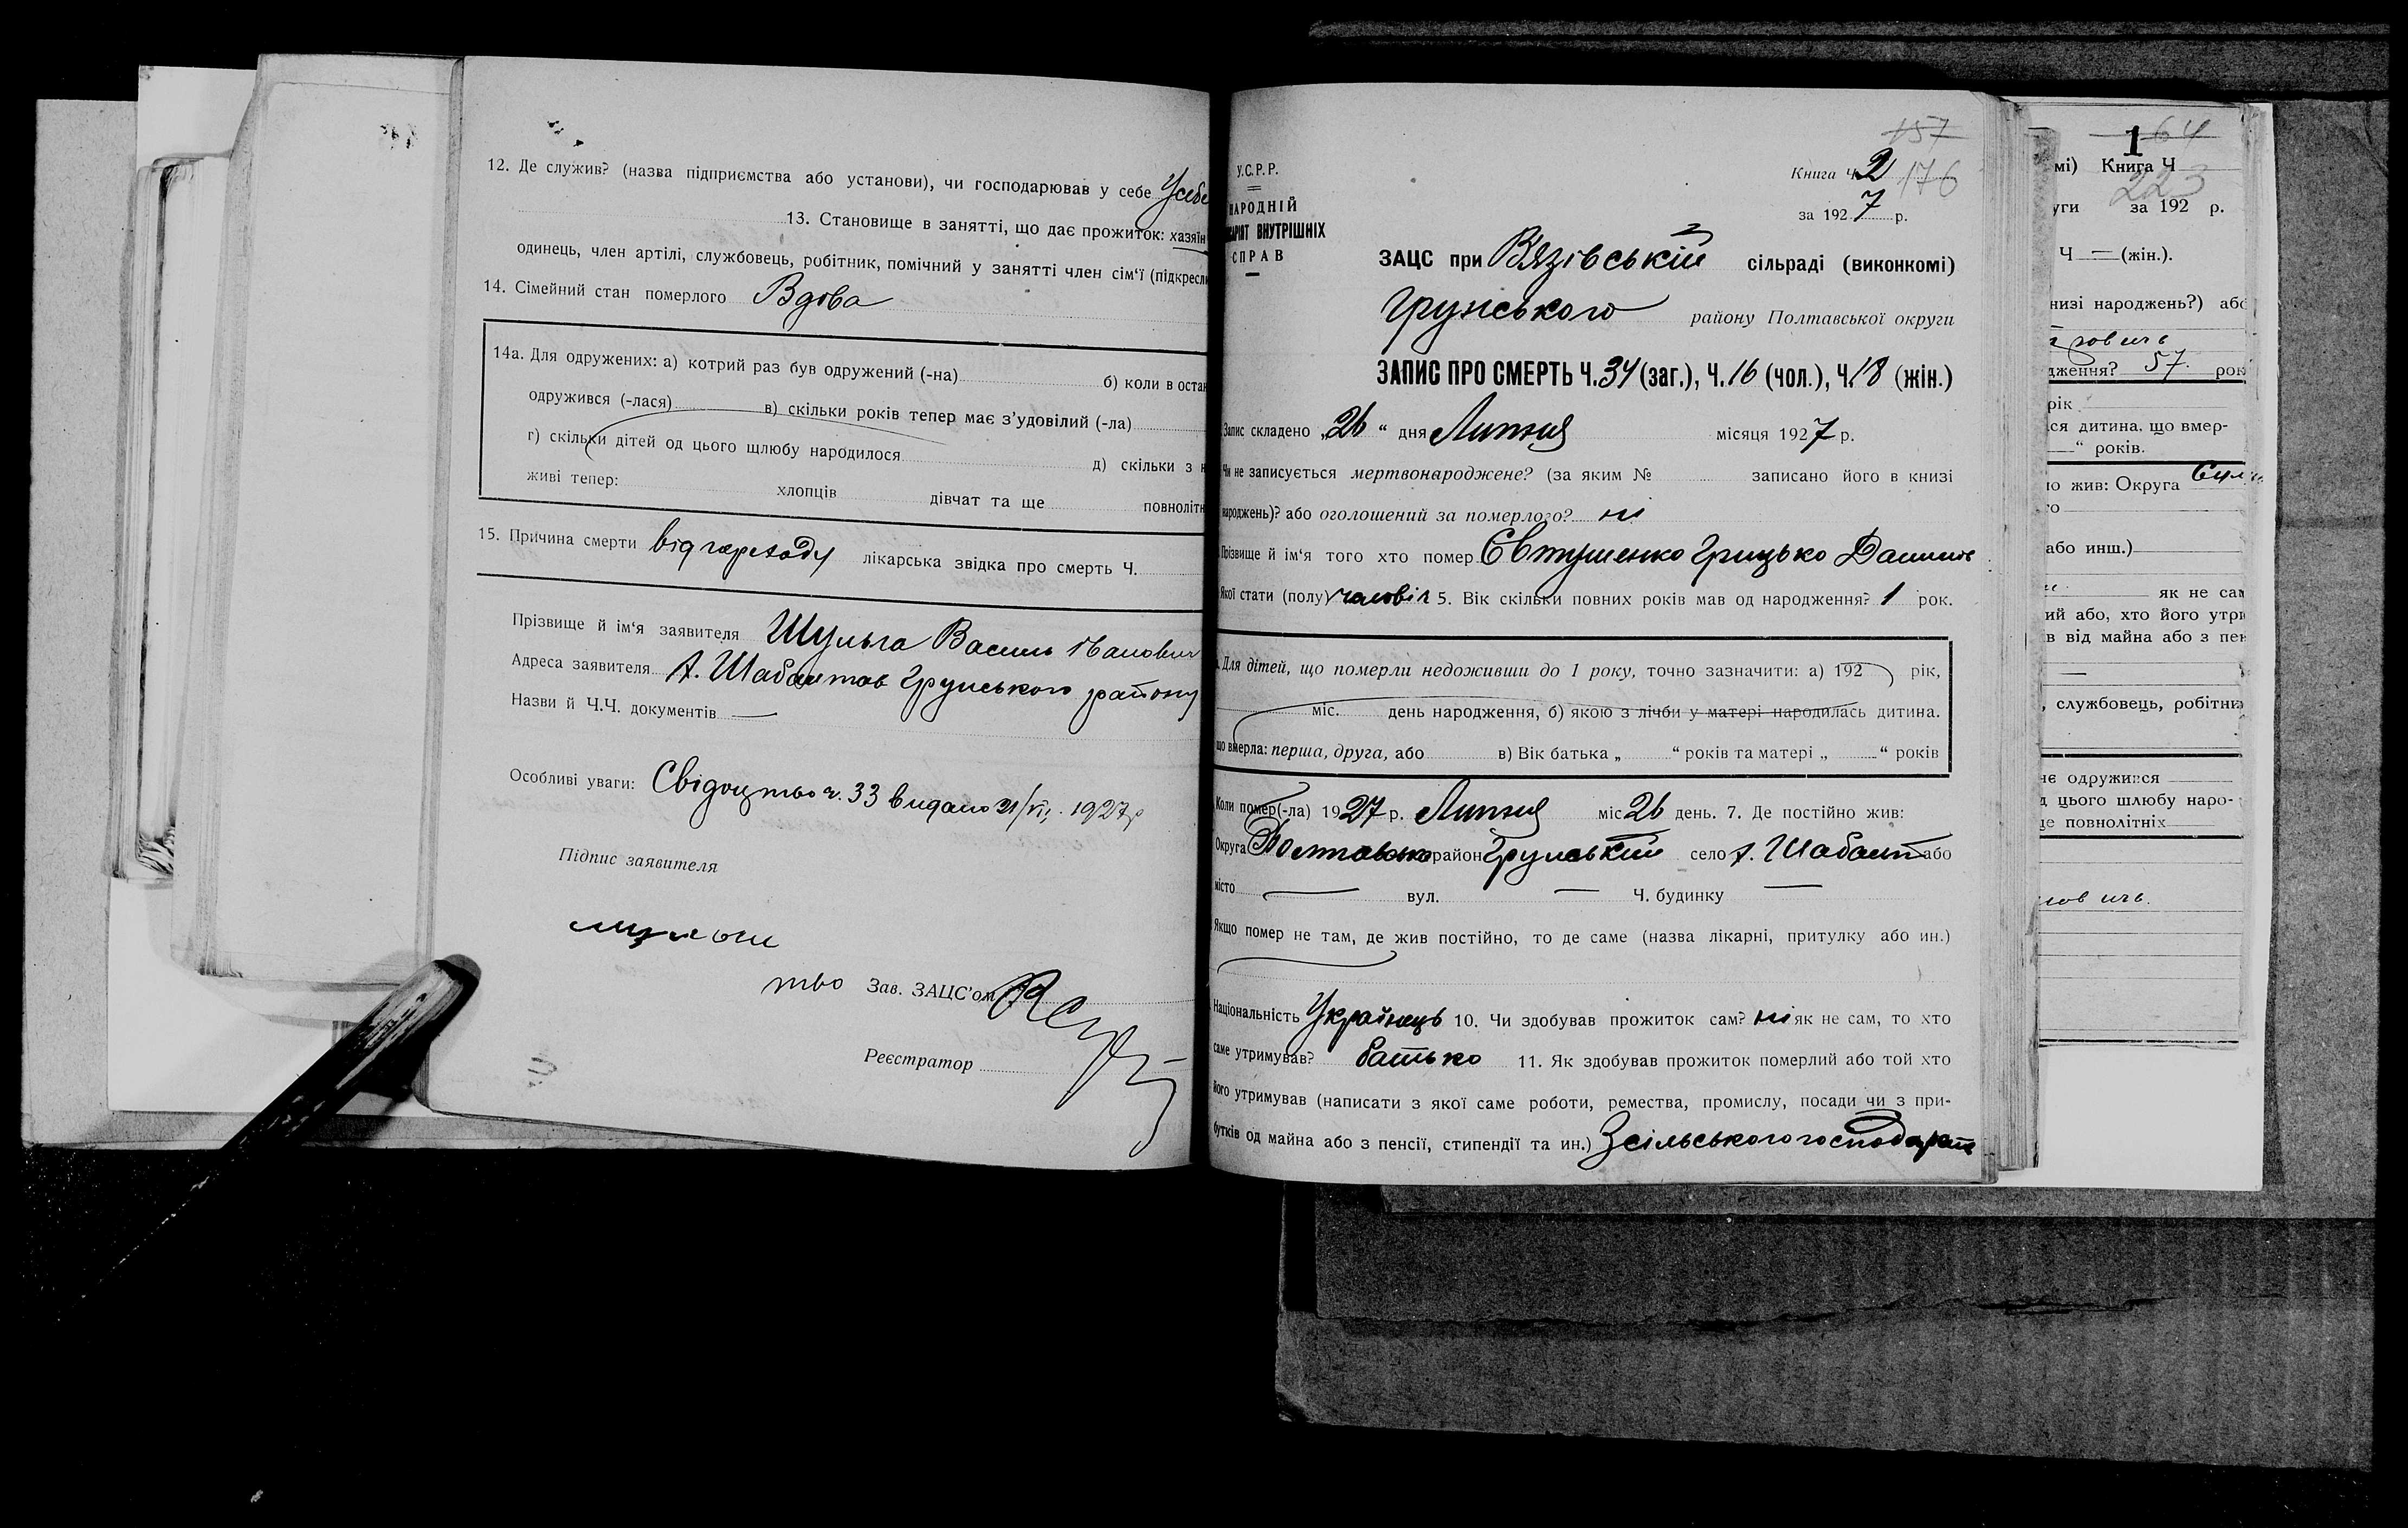 12. Де служив? (назва підприємства або установи), чи господарював у себе Усебе
13. Становище в занятті, що дає прожиток: хазяїн
одинець, член артілі, службовець, робітник, помічний у занятті член сім'ї (підкресл
14. Сімейний стан померлого Вдова
14а. Для одружених: а) котрий раз був одружений (-на) б) коли в оста
одружився (-лася) в) скільки років тепер має з'удовілий (-ла)
г) скільки дітей од цього щлюбу народилося д) скільки з н
живі тепер: хлопців дівчат та ще повноліт
15. Причина смерти лікарська звідка про смерть Ч.
Прізвище й ім'я заявителя Шульга Василь Іванович
Адреса заявителя Грунського району
Назви й Ч.Ч. документів —
Особливі уваги: Свідоцтво ч. 33 видано 21/VII 1927 р
Підпис заявителя
тво Зав. ЗАЦС'ом
Реєстратор
157
Книга Ч. 2 176
за 1927 р.
У.С.Р.Р.
НАРОДНІЙ
АРІЯТ ВНУТРІШНІХ
СПРАВ
ЗАЦС при Вязівській сільраді (виконкомі)
Грунського району Полтавської округи
ЗАПИС ПРО СМЕРТЬ Ч. 34 (заг.), Ч. 16 (чол.), Ч. 18 (жін.)
Запис складено „26“ дня Липня місяця 1927 р.
Чи не записується мертвонароджене? (за яким № записано його в книзі
народжень)? або оголошений за померлого? ні
Прізвище й ім'я того хто помер Євтушенко Грицько
Якої стати (полу) чоловіч 5. Вік скільки повних років мав од народження? 1 рок.
Для дітей, що померли недоживши до 1 року, точно зазначити: а) 192 рік,
міс. день народження, б) якою з лічби у матері народилась дитина.
що вмерла: перша, друга, або в) Вік батька „ “ років та матері „ “ років
Коли помер(-ла) 1927 р. Липня міс 26 день. 7. Де постійно жив:
Округа Полтавсько район Грунський село або
місто — вул. — Ч. будинку —
Якщо помер не там, де жив постійно, то де саме (назва лікарні, притулку або ин.)
Національність Українець 10. Чи здобував прожиток сам? ні як не сам, то хто
саме утримував? батько 11. Як здобував прожиток померлий або той хто
його утримував (написати з якої саме роботи, ремества, промислу, посади чи з при-
бутків од майна або з пенсії, стипендії та ин.) Зсільського господарств
1 64
мі) Книга Ч
223
уги за 192 р.
Ч — (жін.).
низі народжень?) або
дження? 57. рок
рік
ся дитина, що вмер-
“ років.
о жив: Округа
го
або инш.)
як не сам
ий або, хто його утри
в від майна або з пен
—
, службовець, робітни
не одружився
д цього шлюбу наро-
ще повнолітніх